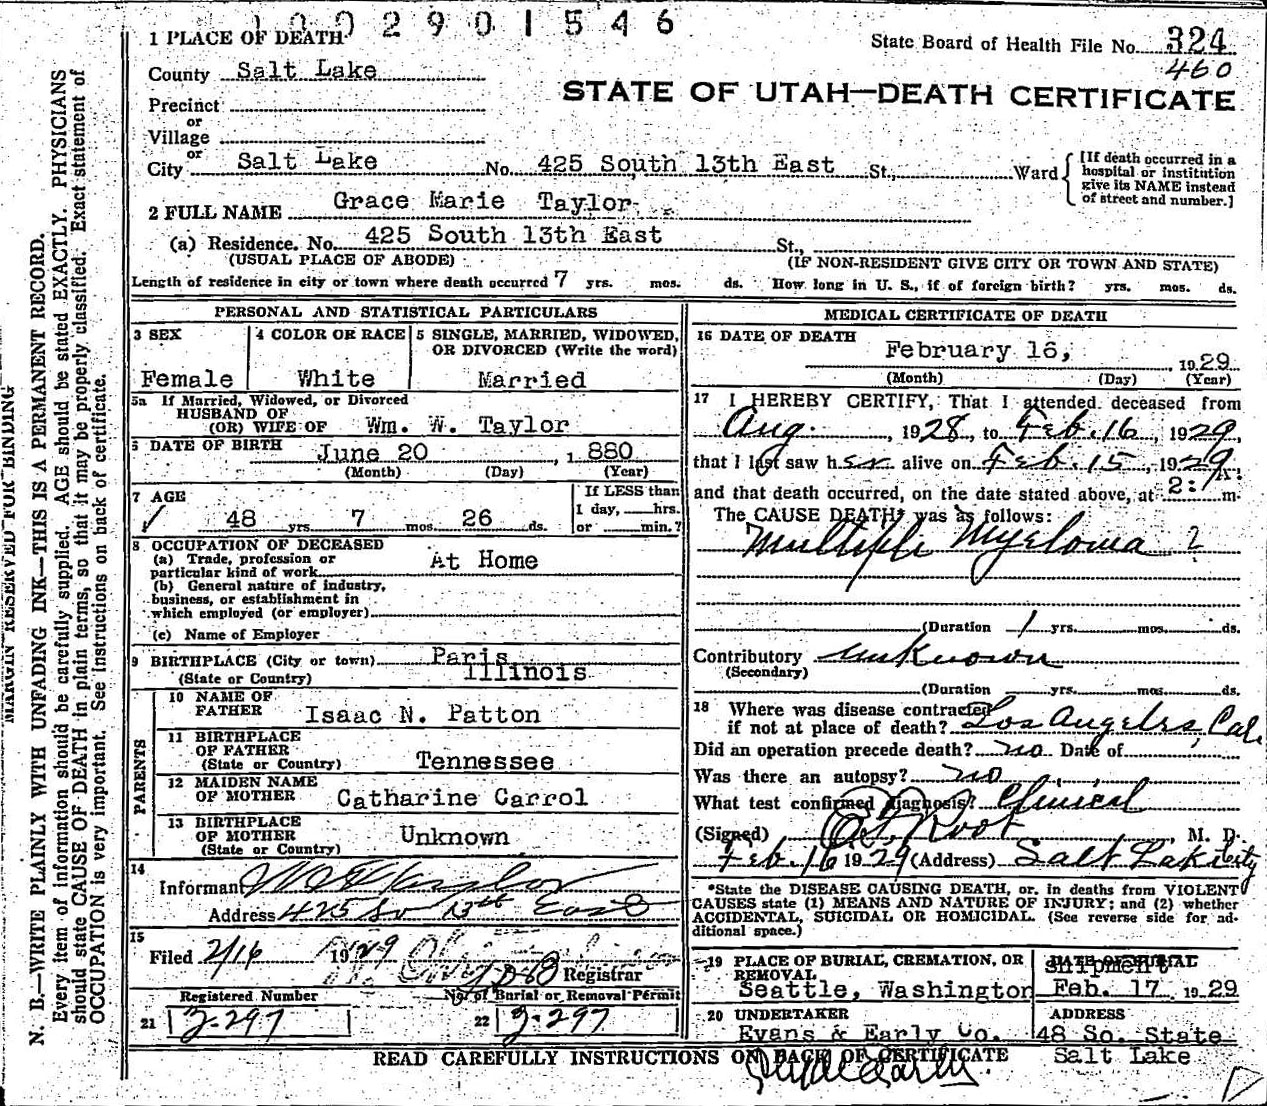 1002901546
1 PLACE OF DEATH
State Board of Health File No. 324
460
County Salt Lake
STATE OF UTAH—DEATH CERTIFICATE
Precinct
or
Village
or
City Salt Lake No. 425 South 13th East St., Ward
[If death occurred in a
hospital or institution
give its NAME instead
of street and number.]
2 FULL NAME Grace Marie Taylor
(a) Residence. No. 425 South 13th East St.,
(USUAL PLACE OF ABODE) (IF NON-RESIDENT GIVE CITY OR TOWN AND STATE)
Length of residence in city or town where death occurred 7 yrs. mos. ds. How long in U. S., if of foreign birth? yrs. mos. ds.
PERSONAL AND STATISTICAL PARTICULARS
3 SEX 4 COLOR OR RACE 5 SINGLE, MARRIED, WIDOWED,
OR DIVORCED (Write the word)
Female White Married
5a If Married, Widowed, or Divorced
HUSBAND OF
(OR) WIFE OF Wm. W. Taylor
6 DATE OF BIRTH June 20, 1880
(Month) (Day) (Year)
7 AGE
If LESS than
1 day, hrs.
or min.?
48 yrs 7 mos. 26 ds.
8 OCCUPATION OF DECEASED
(a) Trade, profession or
particular kind of work At Home
(b) General nature of industry,
business, or establishment in
which employed (or employer)
(c) Name of Employer
9 BIRTHPLACE (City or town) Paris
(State or Country) Illinois
PARENTS
10 NAME OF
FATHER Isaac N. Patton
11 BIRTHPLACE
OF FATHER
(State or Country) Tennessee
12 MAIDEN NAME
OF MOTHER Catharine Carrol
13 BIRTHPLACE
OF MOTHER
(State or Country) Unknown
14
Informant W W Taylor
Address 425 So 13th East
15
Filed 2/16 1929 Registrar
Registered Number No. of Burial or Removal Permit
21 2-297 22 2-297
MEDICAL CERTIFICATE OF DEATH
16 DATE OF DEATH
February 16, 1929
(Month) (Day) (Year)
17 I HEREBY CERTIFY, That I attended deceased from
Aug. , 1928, to Feb. 16, 1929,
that I last saw her alive on Feb. 15, 1929,
and that death occurred, on the date stated above, at 2: A. m.
The CAUSE DEATH* was as follows:
Multiple Myeloma ?
(Duration 1 yrs. mos. ds.
Contributory unknown
(Secondary)
(Duration yrs. mos. ds.
18 Where was disease contracted
if not at place of death? Los Angeles, Cal.
Did an operation precede death? no Date of
Was there an autopsy? no
What test confirmed diagnosis? Clinical
(Signed) Root, M. D.
Feb. 16 1929 (Address) Salt Lake City
*State the DISEASE CAUSING DEATH, or, in deaths from VIOLENT
CAUSES state (1) MEANS AND NATURE OF INJURY; and (2) whether
ACCIDENTAL, SUICIDAL OR HOMICIDAL. (See reverse side for ad-
ditional space.)
19 PLACE OF BURIAL, CREMATION, OR
REMOVAL
Seattle, Washington
DATE OF BURIAL
Shipment
Feb. 17 1929
20 UNDERTAKER
Evans & Early Co.
ADDRESS
48 So. State
Salt Lake
READ CAREFULLY INSTRUCTIONS ON BACK OF CERTIFICATE
MARGIN RESERVED FOR BINDING
N. B.—WRITE PLAINLY WITH UNFADING INK—THIS IS A PERMANENT RECORD.
Every item of information should be carefully supplied. AGE should be stated EXACTLY. PHYSICIANS
should state CAUSE OF DEATH in plain terms, so that it may be properly classified. Exact statement of
OCCUPATION is very important. See instructions on back of certificate.